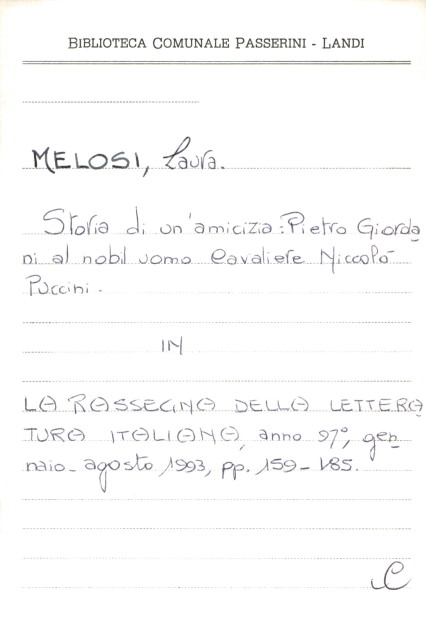 BIBLIOTECA COMUNALE PASSERINI - LANDI
MELOSI, Laura.
Storia di un'amicizia: Pietro Giorda
ni al nobil uomo Cavaliere Niccolò
Puccini.
IN
LA RASSEGNA DELLA LETTERA
TURA ITALIANA, anno 97°, gen
naio-agosto 1993, pp. 159-185.
C